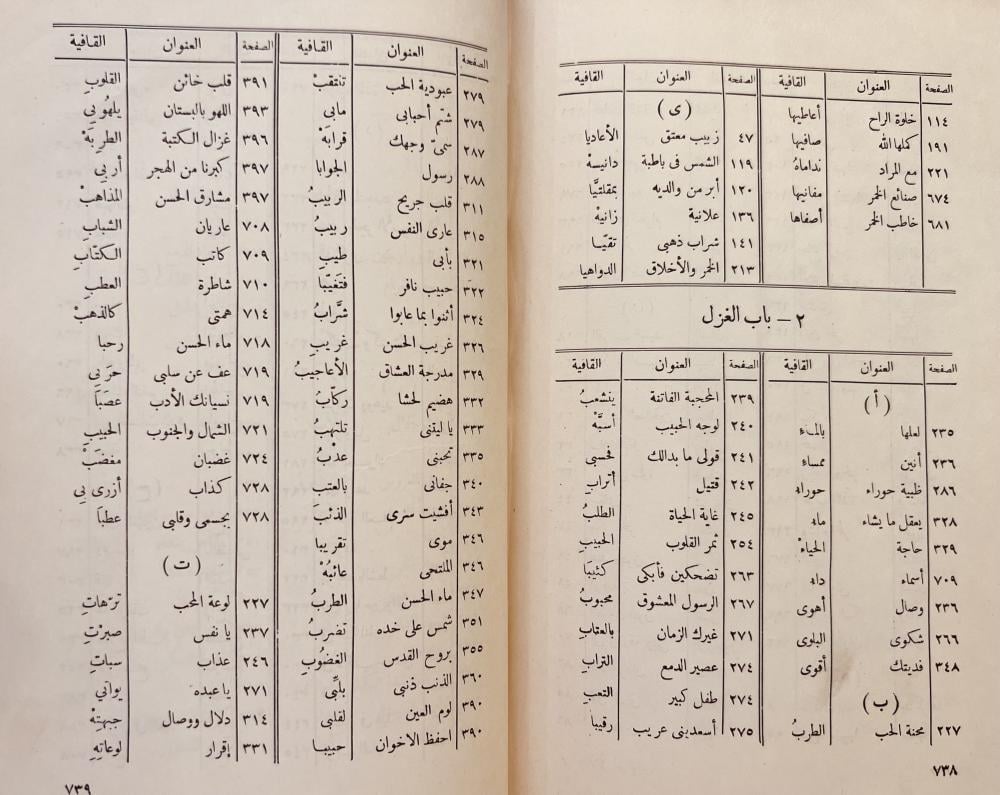 الصفحة العنوان القافية
١١٤ خلوة الراح أعاطيها
١٩١ كملها الله صافيها
٢٢١ مع المراد نداماهُ
٦٧٤ صنائع الخمر مفانيها
٦٨١ خاطب الخمر أصفاها
الصفحة العنوان القافية
(ى)
٤٧ زبيب معتق الأعاديا
١١٩ الشمس فى باطية دانيسهْ
١٢٠ أبر من والديه بمقلتيَّا
١٣٦ علانية زانيهْ
١٤١ شراب ذهبى تقيّا
٢١٣ الخمر والأخلاق الدواهيا
٢ – باب الغزل
الصفحة العنوان القافية
(أ)
٢٣٥ لعلها بالماء
٢٣٦ أنين مساء
٢٨٦ ظبية حوراء حوراء
٣٢٨ يعقل ما يشاء ماء
٣٢٩ حاجة الحياءْ
٧٠٩ أسماء داء
٢٣٦ وصال أهوى
٢٦٦ شكوى البلوى
٣٤٨ فديتك أقوى
(ب)
٢٢٧ محنة الحب الطربُ
الصفحة العنوان القافية
٢٣٩ المحجبة الفاتنة ينشعبُ
٢٤٠ لوجه الحبيب أسبَّهْ
٢٤١ قولى ما بدالك فحسبى
٢٤٢ قتيل أترابِ
٢٤٥ غاية الحياة الطلبُ
٢٥٤ ثمر القلوب الحبيبِ
٢٦٣ تضحكين فأبكى كئيبَا
٢٦٧ الرسول المعشوق محبوبُ
٢٧١ غيرك الزمان بالعتابِ
٢٧٤ عصير الدمع الترابِ
٢٧٤ طفل كبير التعبِ
٢٧٥ أسعدينى عريب رقيبا
٧٣٨
الصفحة العنوان القافية
٢٧٩ عبودية الحب تنتقبْ
٢٧٩ شتم أحبابى مابى
٢٨٧ سمىّ وجهك قرابَهْ
٢٨٨ رسول الجوابا
٣١١ قلب جريح الربيبُ
٣١٥ عارى النفس ربيبُ
٣٢١ بأبى طيبِ
٣٢٢ حبيب نافر فتَغَيَّبا
٣٢٤ أثنوا بما عابوا شرَّابُ
٣٢٦ غريب الحسن غريبِ
٣٢٩ مدرجة العشاق الأعاجيبُ
٣٣٢ هضيم لحشا ركّابُ
٣٣٣ يا ليتنى تلتهبُ
٣٣٥ تحبنى عذْبُ
٣٤٠ جفانى بالعتب
٣٤٣ أفشيت سرى الذنبَ
٣٤٦ موى تقريبا
٣٤٦ الملتحى عائبُهْ
٣٤٧ ماء الحسن الطربُ
٣٥١ شمس على خده تضربُ
٣٥٥ بروح القدس الغضُوبُ
٣٦٠ الذنب ذنبى بلبِّى
٣٩٠ لوم العين لقلبى
٣٩٠ احفظ الاخوان حبيبا
الصفحة العنوان القافية
٣٩١ قلب خائن القلوبِ
٣٩٣ اللهو بالبستان يلهُو بى
٣٩٦ غزال الكتبة الطربَهْ
٣٩٧ كبرنا من الهجر أربى
٣٩٧ مشارق الحسن المذاهبْ
٧٠٨ عاريان الشبابِ
٧٠٩ كاتب الكتّابِ
٧١٠ شاطرة العطبِ
٧١٤ همتى كالذهبْ
٧١٨ ماء الحسن رحبا
٧١٩ عف عن سلبى حرَبى
٧١٩ نسيانك الأدب عصبَا
٧٢١ الشمال والجنوب الحبيبِ
٧٢٤ غضبان مغضَبْ
٧٢٨ كذاب أزرى بى
٧٢٨ بجسمى وقلبى عطبَا
(ت)
٢٢٧ لوعة المحب ترّهاتِ
٢٣٧ يا نفس صبرْتِ
٢٤٦ عذاب سباتِ
٢٧١ يا عبده يواتى
٣١٤ دلال ووصال جبهتِهْ
٣٣١ إقرار لوعاتِهِ
٧٣٩